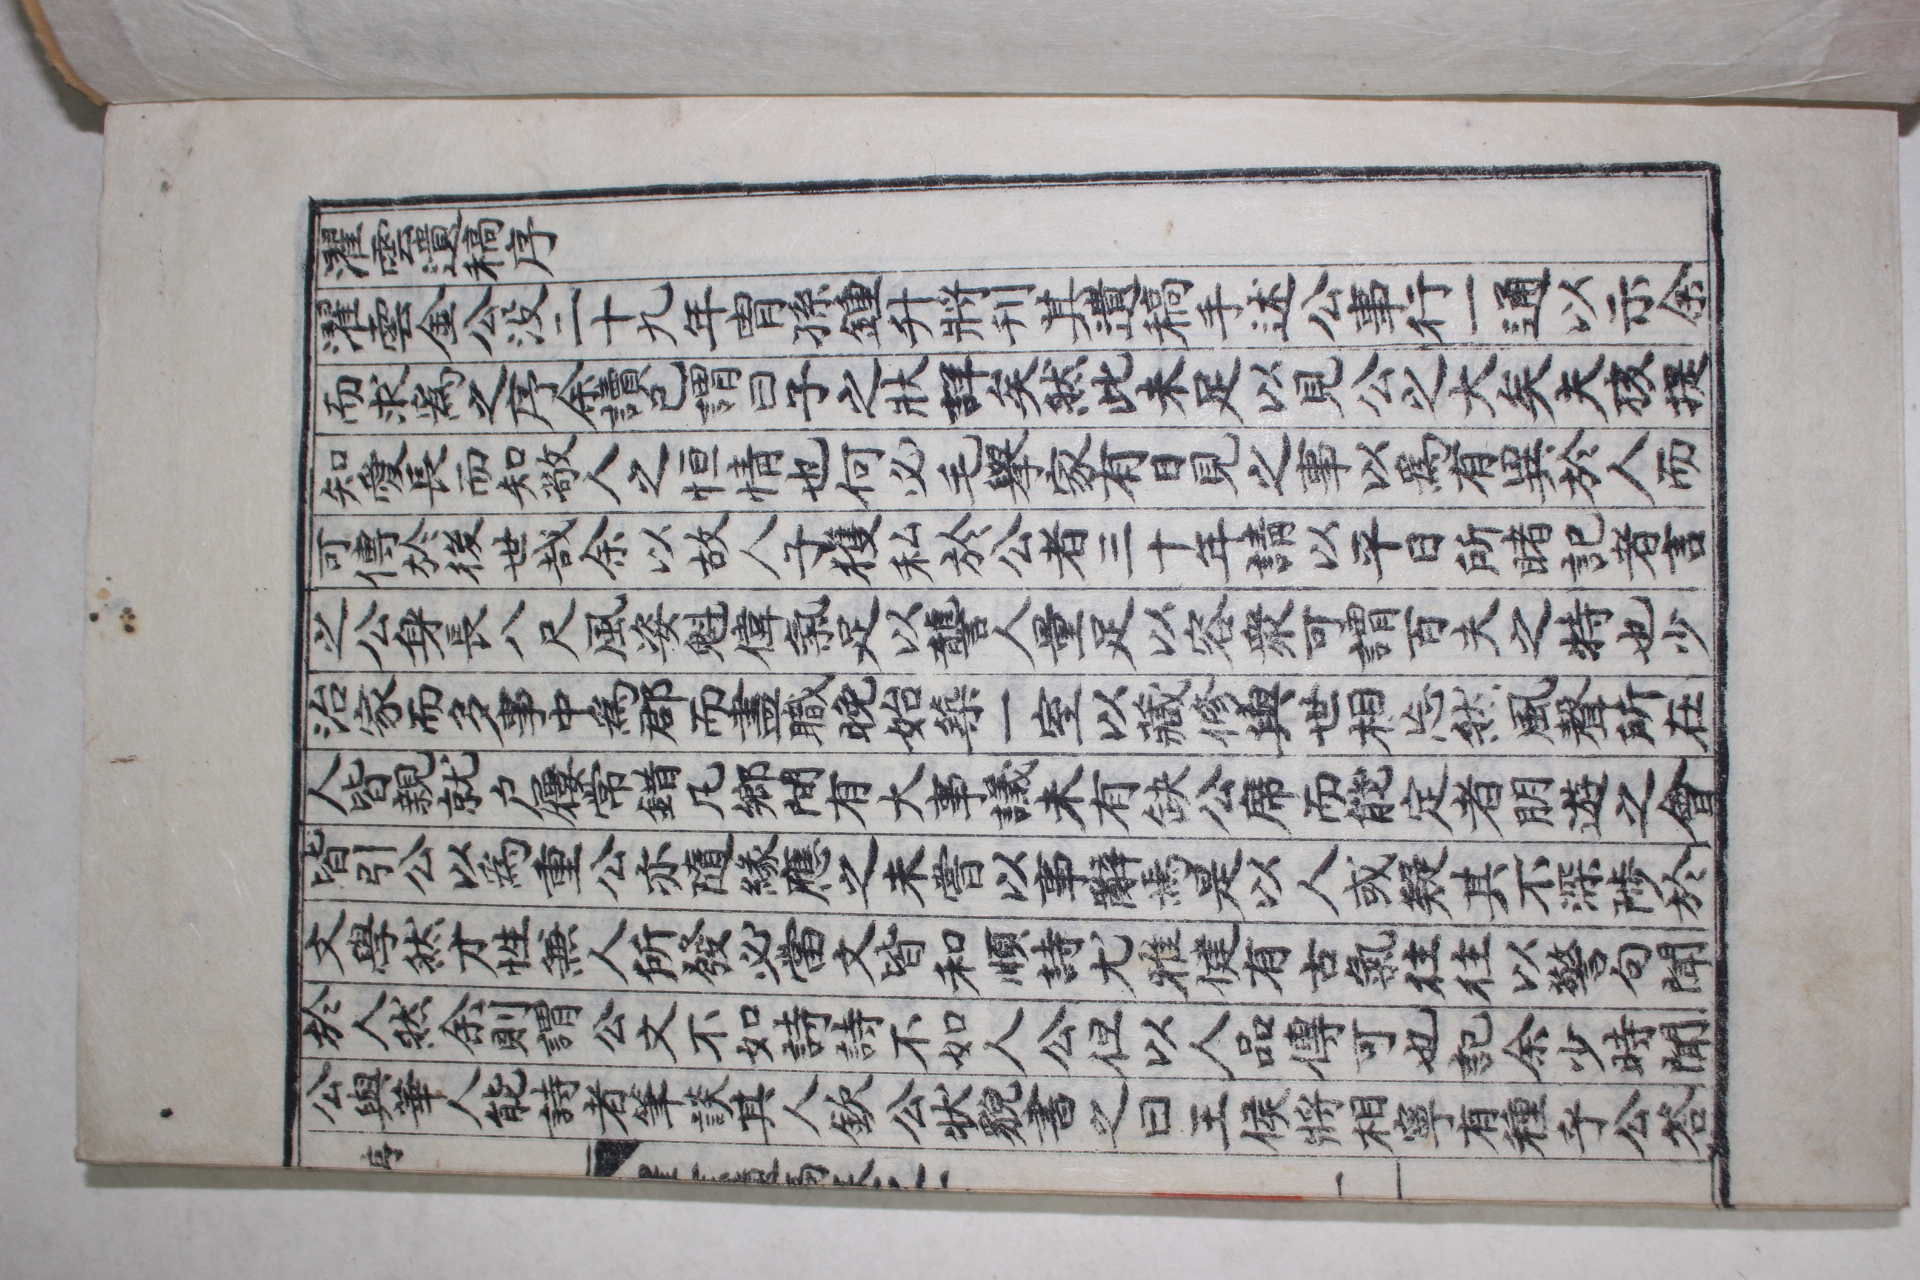 濯雲遺稿序
濯雲金公沒二十九年胄孫鍾升將刊其遺稿手述公事行一通以示余
而求爲之序余讀已謂曰子之狀詳矣然此未足以見公之大矣夫孩提
知愛長而知敬人之恒情也何必毛擧家有日見之事以爲有異於人而
可傳於後世哉余以故人子獲私於公者三十年請以平日所睹記者言
之公身長八尺風姿魁偉氣足以讋人量足以容衆可謂百夫之特也少
治家而多事中爲郡而盡職晩始築一室以藏修與世相忘然風聲所在
人皆親就戶屨常錯凡鄕閭有大事議未有缺公席而能定者朋遊之會
皆引公以爲重公亦隨緣應之未嘗以事辭焉是以人或疑其不深漸於
文學然才性無人所發必當文皆和順詩尤雅健有古氣往往以警句聞
於人然余則謂公文不如詩詩不如人公但以人品傳可也記余少時聞
公與華人能詩者筆談其人欽公狀貌書之曰王侯將相寧有種乎公答
序